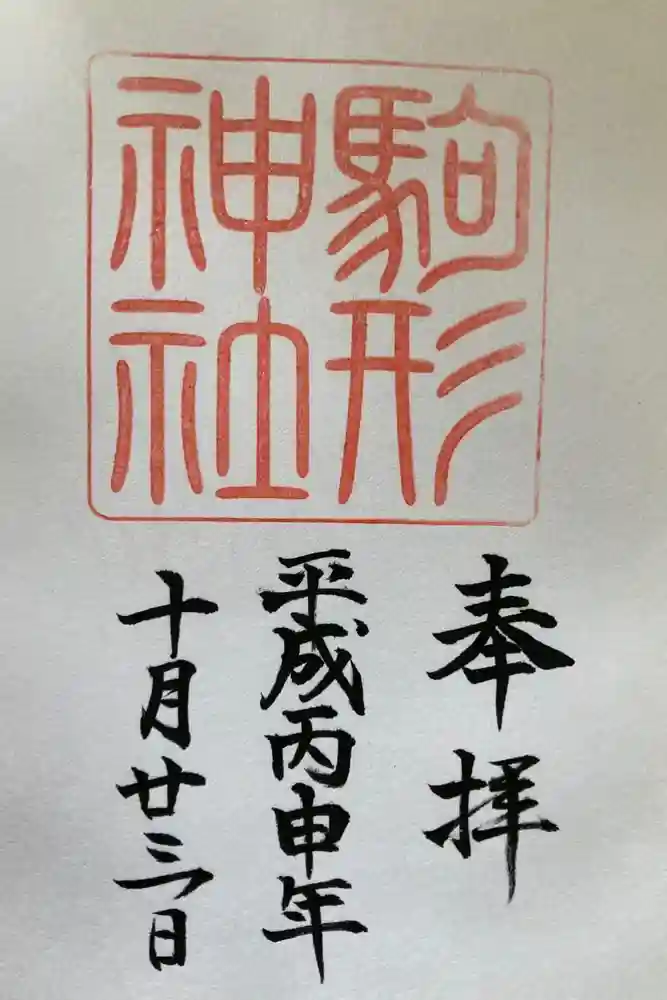 駒形
神社
奉拝
平成丙申年
十月廿三日